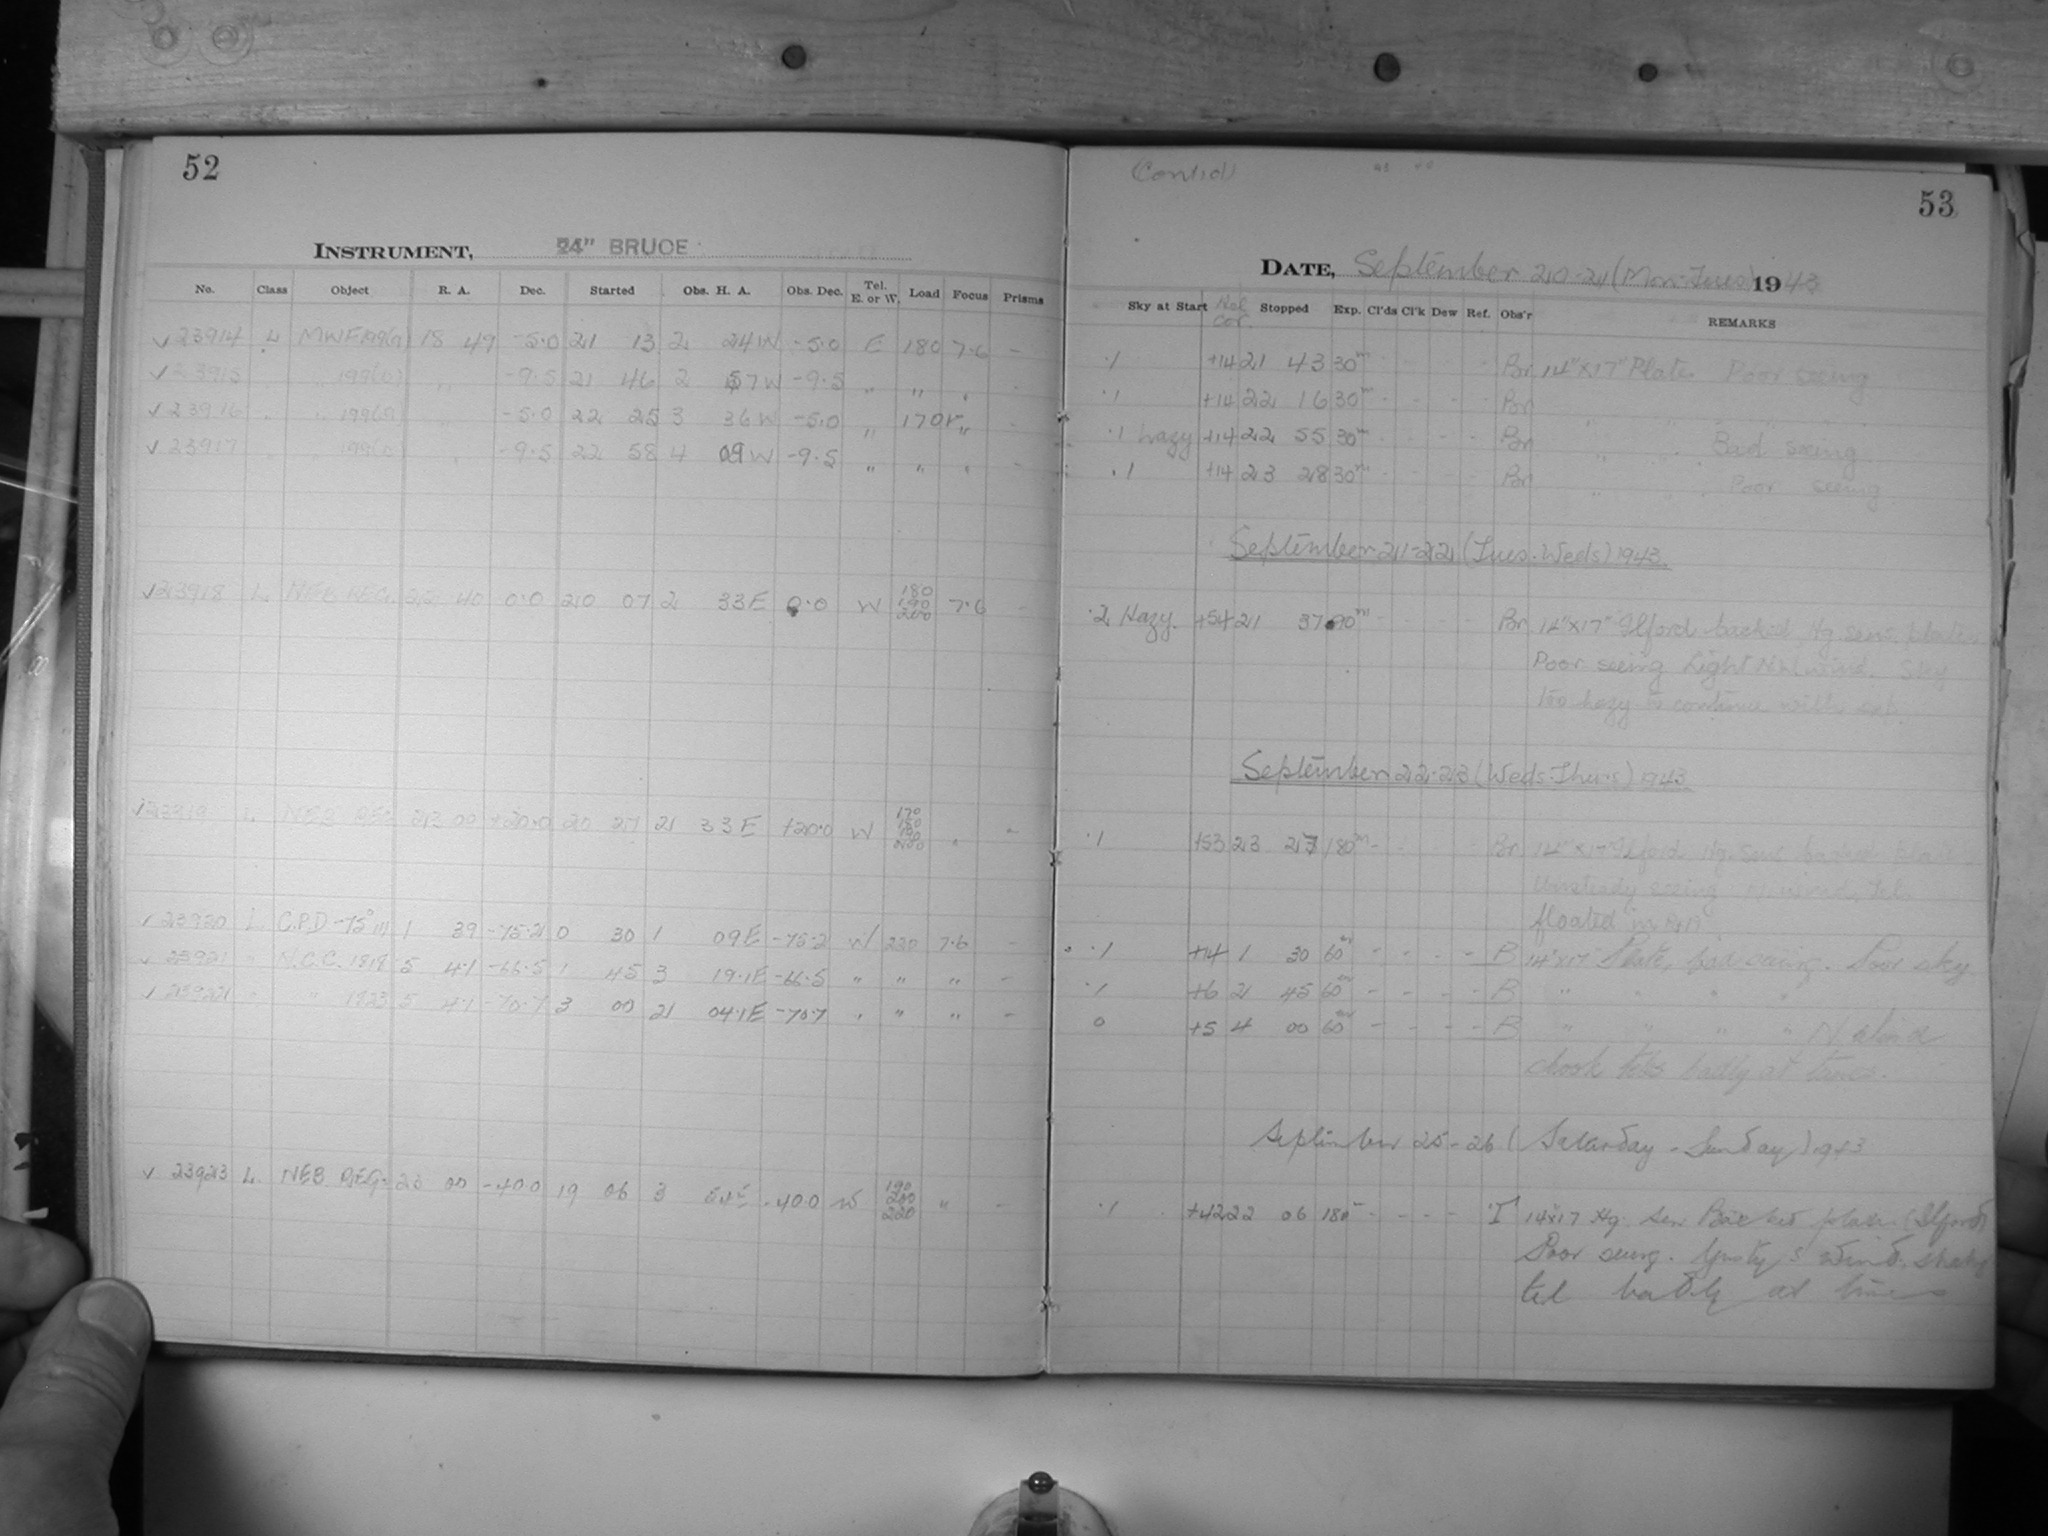 52
INSTRUMENT, 24" BRUCE
No. Class Object R. A. Dec. Started Obs. H. A. Obs. Dec. Tel. E. or W. Load Focus Prisms
√ 23914 L MWF 18 49 -5.0 21 13 2 24 W -5.0 E 180 7.6 -
√ 23915 " " " -9.5 21 46 2 57 W -9.5 " " " -
√ 23916 " " -5.0 22 25 3 36 W -5.0 " 170 " -
√ 23917 " " " -9.5 22 58 4 09 W -9.5 " " " -
√ 23918 L NEB REG. 22 40 0.0 20 07 2 33 E 0.0 W 180 190 200 7.6 -
√ 23919 L NEB REG 23 00 +20.0 20 27 2 33 E +20.0 W 170 180 190 200 " -
√ 23920 L C.P.D -75° 111 1 39 -75.2 0 30 1 09 E -75.2 W 220 7.6 -
√ 23921 " N.G.C. 1818 5 4.1 -66.5 1 45 3 19.1 E -66.5 " " " -
√ 23922 " " 1823 5 4.1 -70.7 3 00 2 04.1 E -70.7 " " " -
√ 23923 L. NEB REG. 23 00 -40.0 19 06 3 E -40.0 W 190 200 220 " -
(Contd)
53
DATE, September 20-21 (Mon-Tues) 1943
Sky at Start Stopped Exp. Cl'ds Cl'k Dew Ref. Obs'r REMARKS
.1 +14 21 43 30m - - - - Br 14"x17" Plate. Poor seeing
.1 +14 22 16 30m - - - - Br " " " "
.1 hazy +14 22 55 30m - - - - Br " " Bad seeing
.1 +14 23 28 30m - - - - Br " " Poor seeing
September 21-22 (Tues-Weds) 1943.
.2 Hazy. +54 21 37 90m - - - - Br 14"x17" Ilford backed Hg. sens. plate.
Poor seeing Light NW wind. Sky
too hazy to continue with
September 22-23 (Weds-Thurs) 1943.
.1 +53 23 27 180m - - - - Br 14"x17" Ilford Hg. sens backed
Unsteady seeing wind. Tel.
floated in
.1 +14 1 30 60m - - - - B 14x17 Plate, seeing. Poor sky
.1 +6 2 45 60m - - - - B " " " "
0 +5 4 00 60m - - - - B " " " " N wind
shook badly at times.
September 25-26 (Saturday - Sunday) 1943
.1 +42 22 06 180m - - - - T 14x17 Hg. Sen Backed plate (Ilford)
Poor seeing. Gusty S wind. shaky
tel badly at times